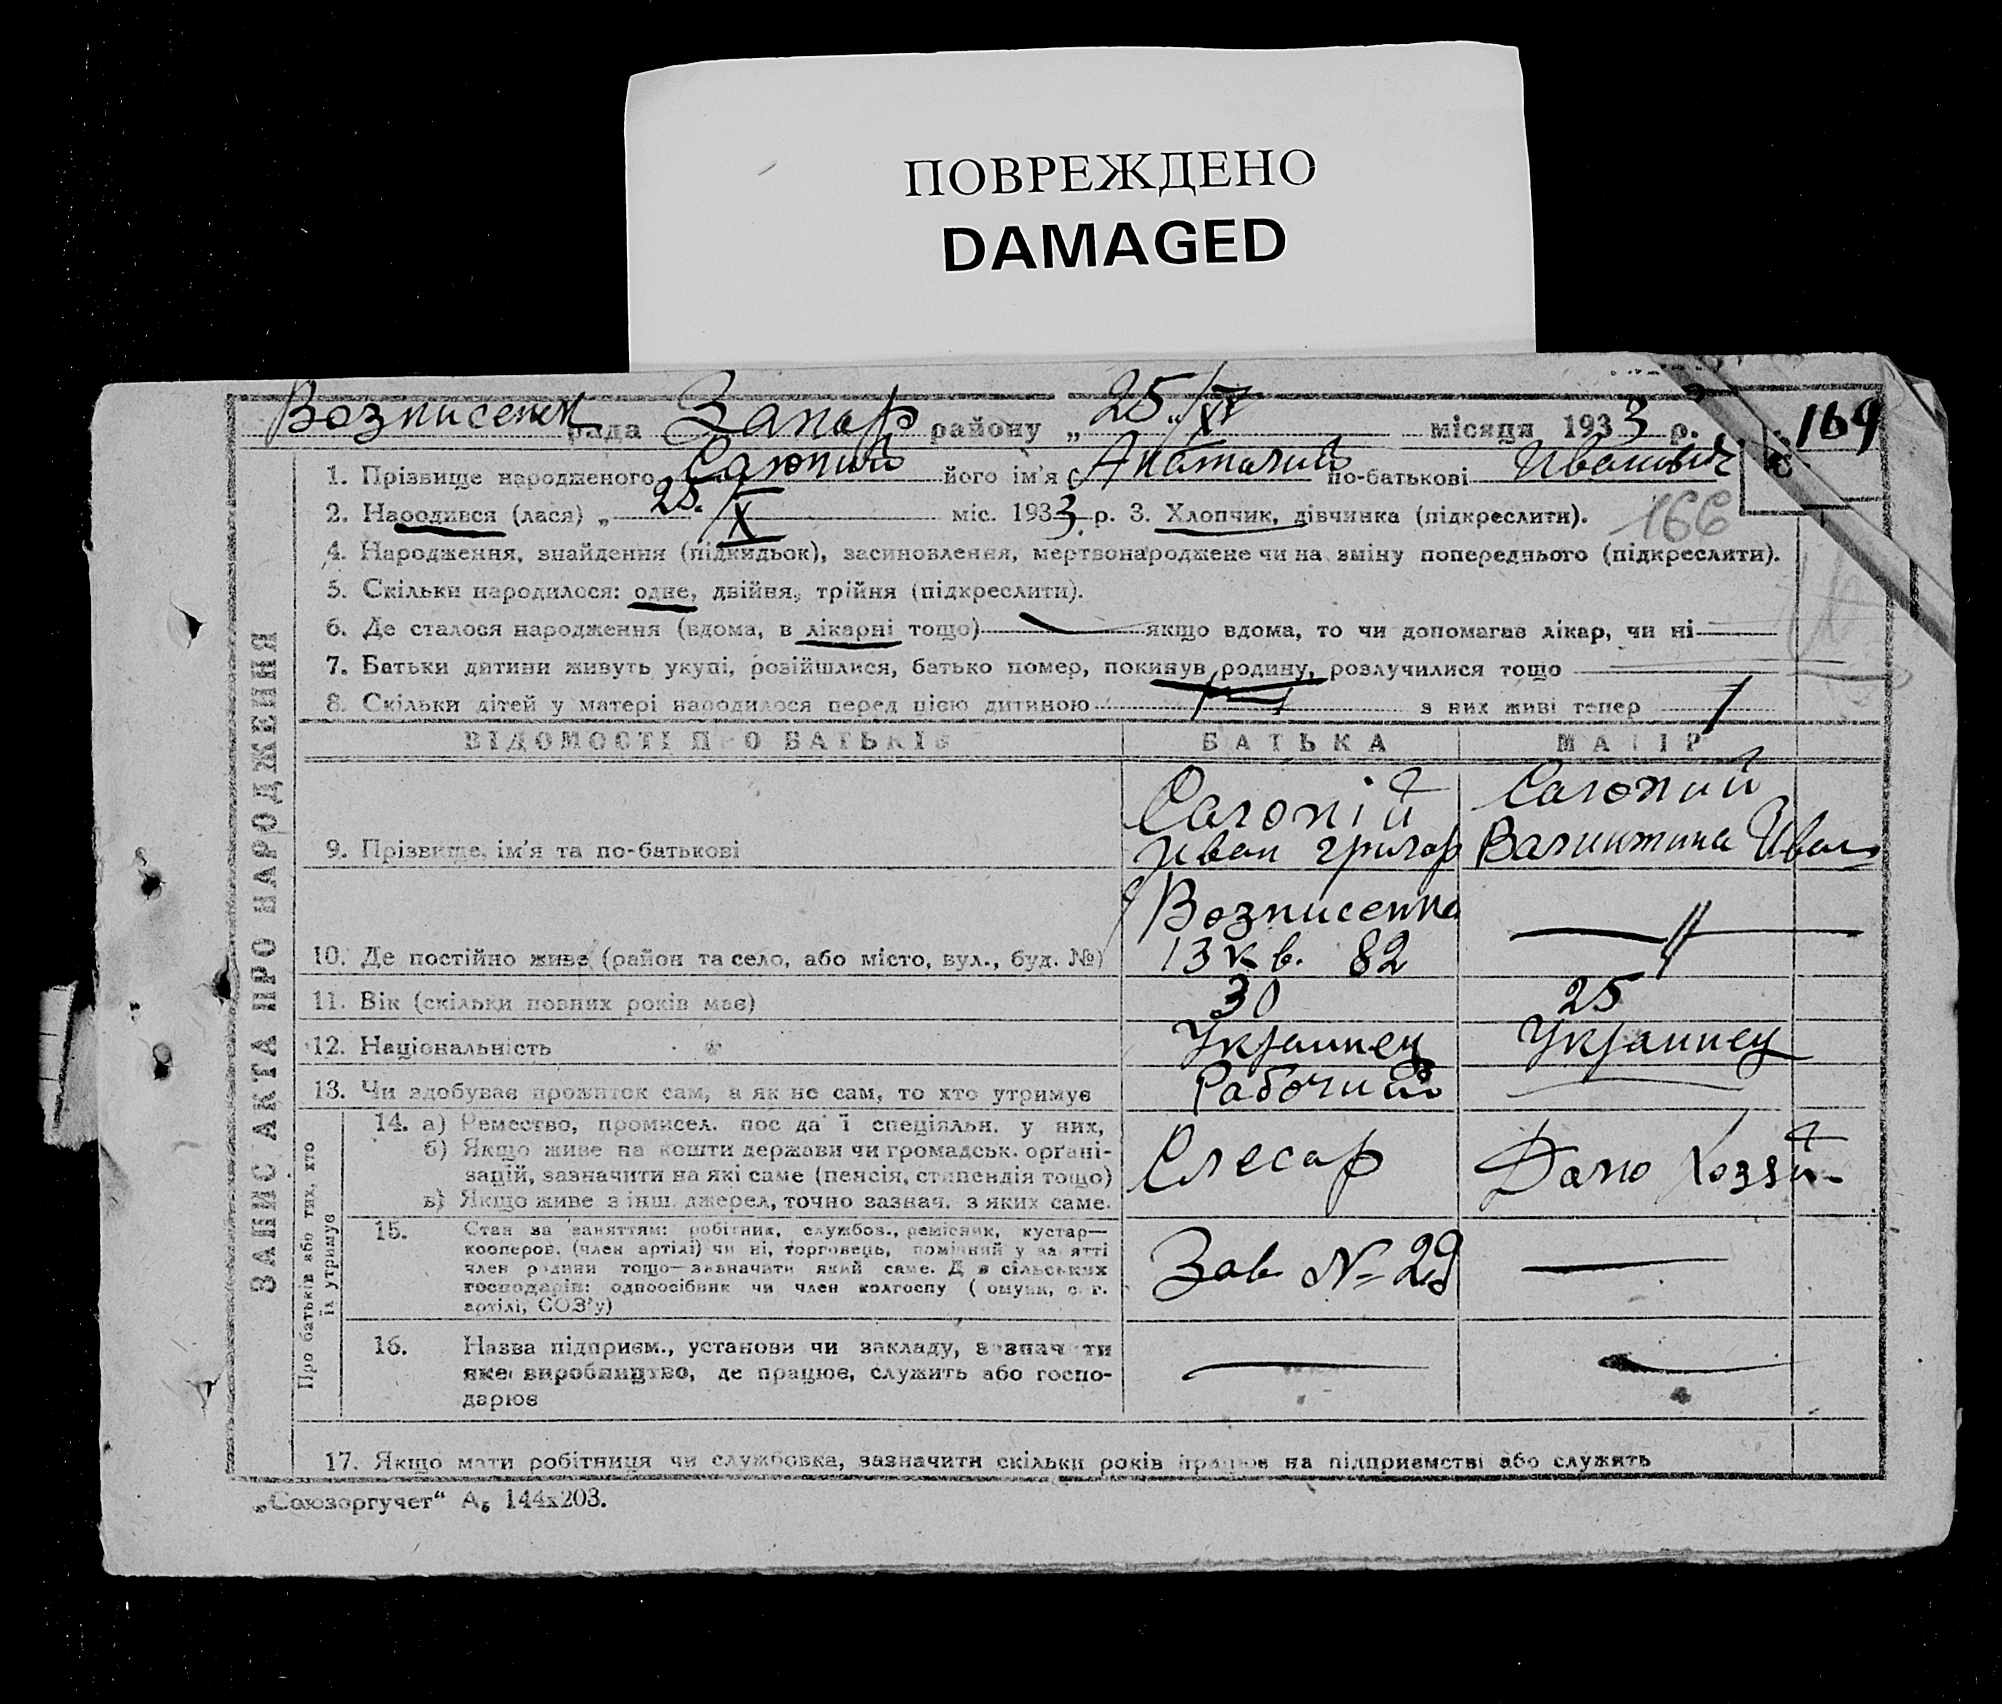 ПОВРЕЖДЕНО
DAMAGED
Вознисенск рада Запор району „25/XI місяця 1933 р. 169
1. Прізвище народженого його ім'я Анатолий по-батькові Иванович
2. Народився (лася) „25/X міс. 1933 р. 3. Хлопчик, дівчинка (підкреслити). 166
4. Народження, знайдення (підкидьок), засиновлення, мертвонароджене чи на зміну попереднього (підкреслити).
5. Скільки народилося: одне, двійня, трійня (підкреслити).
6. Де сталося народження (вдома, в лікарні тощо) якщо вдома, то чи допомагав лікар, чи ні
7. Батьки дитини живуть укупі, розійшлися, батько помер, покинув родину, розлучилися тощо
8. Скільки дітей у матері народилося перед цією дитиною 1 з них живі тепер 1
ВІДОМОСТІ ПРО БАТЬКІВ БАТЬКА МАТІР
Сагопій Сагопий
9. Прізвище, ім'я та по-батькові Иван Григор Валинтина Иван
Вознисенка
10. Де постійно живе (район та село, або місто, вул., буд. №) 13 кв. 82 — // —
11. Вік (скільки повних років має) 30 25
12. Національність Украинец Украинец
13. Чи здобуває прожиток сам, а як не сам, то хто утримує Рабочий —
14. а) Ремество, промисел. пос да ї спеціяльн. у них,
б) Якщо живе на кошти держави чи громадськ. орґані-
зацій, зазначити на які саме (пенсія, стипендія тощо) Слесар Домо хозяй-
в) Якщо живе з інш. джерел, точно зазнач. з яких саме.
15. Стан за заняттям: робітник, службов., ремісник, кустар—
кооперов. (член артілі) чи ні, торговець, помічний у занятті
член родини тощо—зазначити який саме. Для сільських
господарів: одноосібник чи член колгоспу (комуни, с. г.
артілі, СОЗ'у) Зав № 29 —
16. Назва підприєм., установи чи закладу, зазначити
яке виробництво, де працює, служить або госпо-
дарює — —
17. Якщо мати робітниця чи службовка, зазначити скільки років працює на підприємстві або служить
ЗАПИС АКТА ПРО НАРОДЖЕННЯ
Про батьків або тих, хто
їх утримує
„Союзоргучет“ А₅ 144х203.